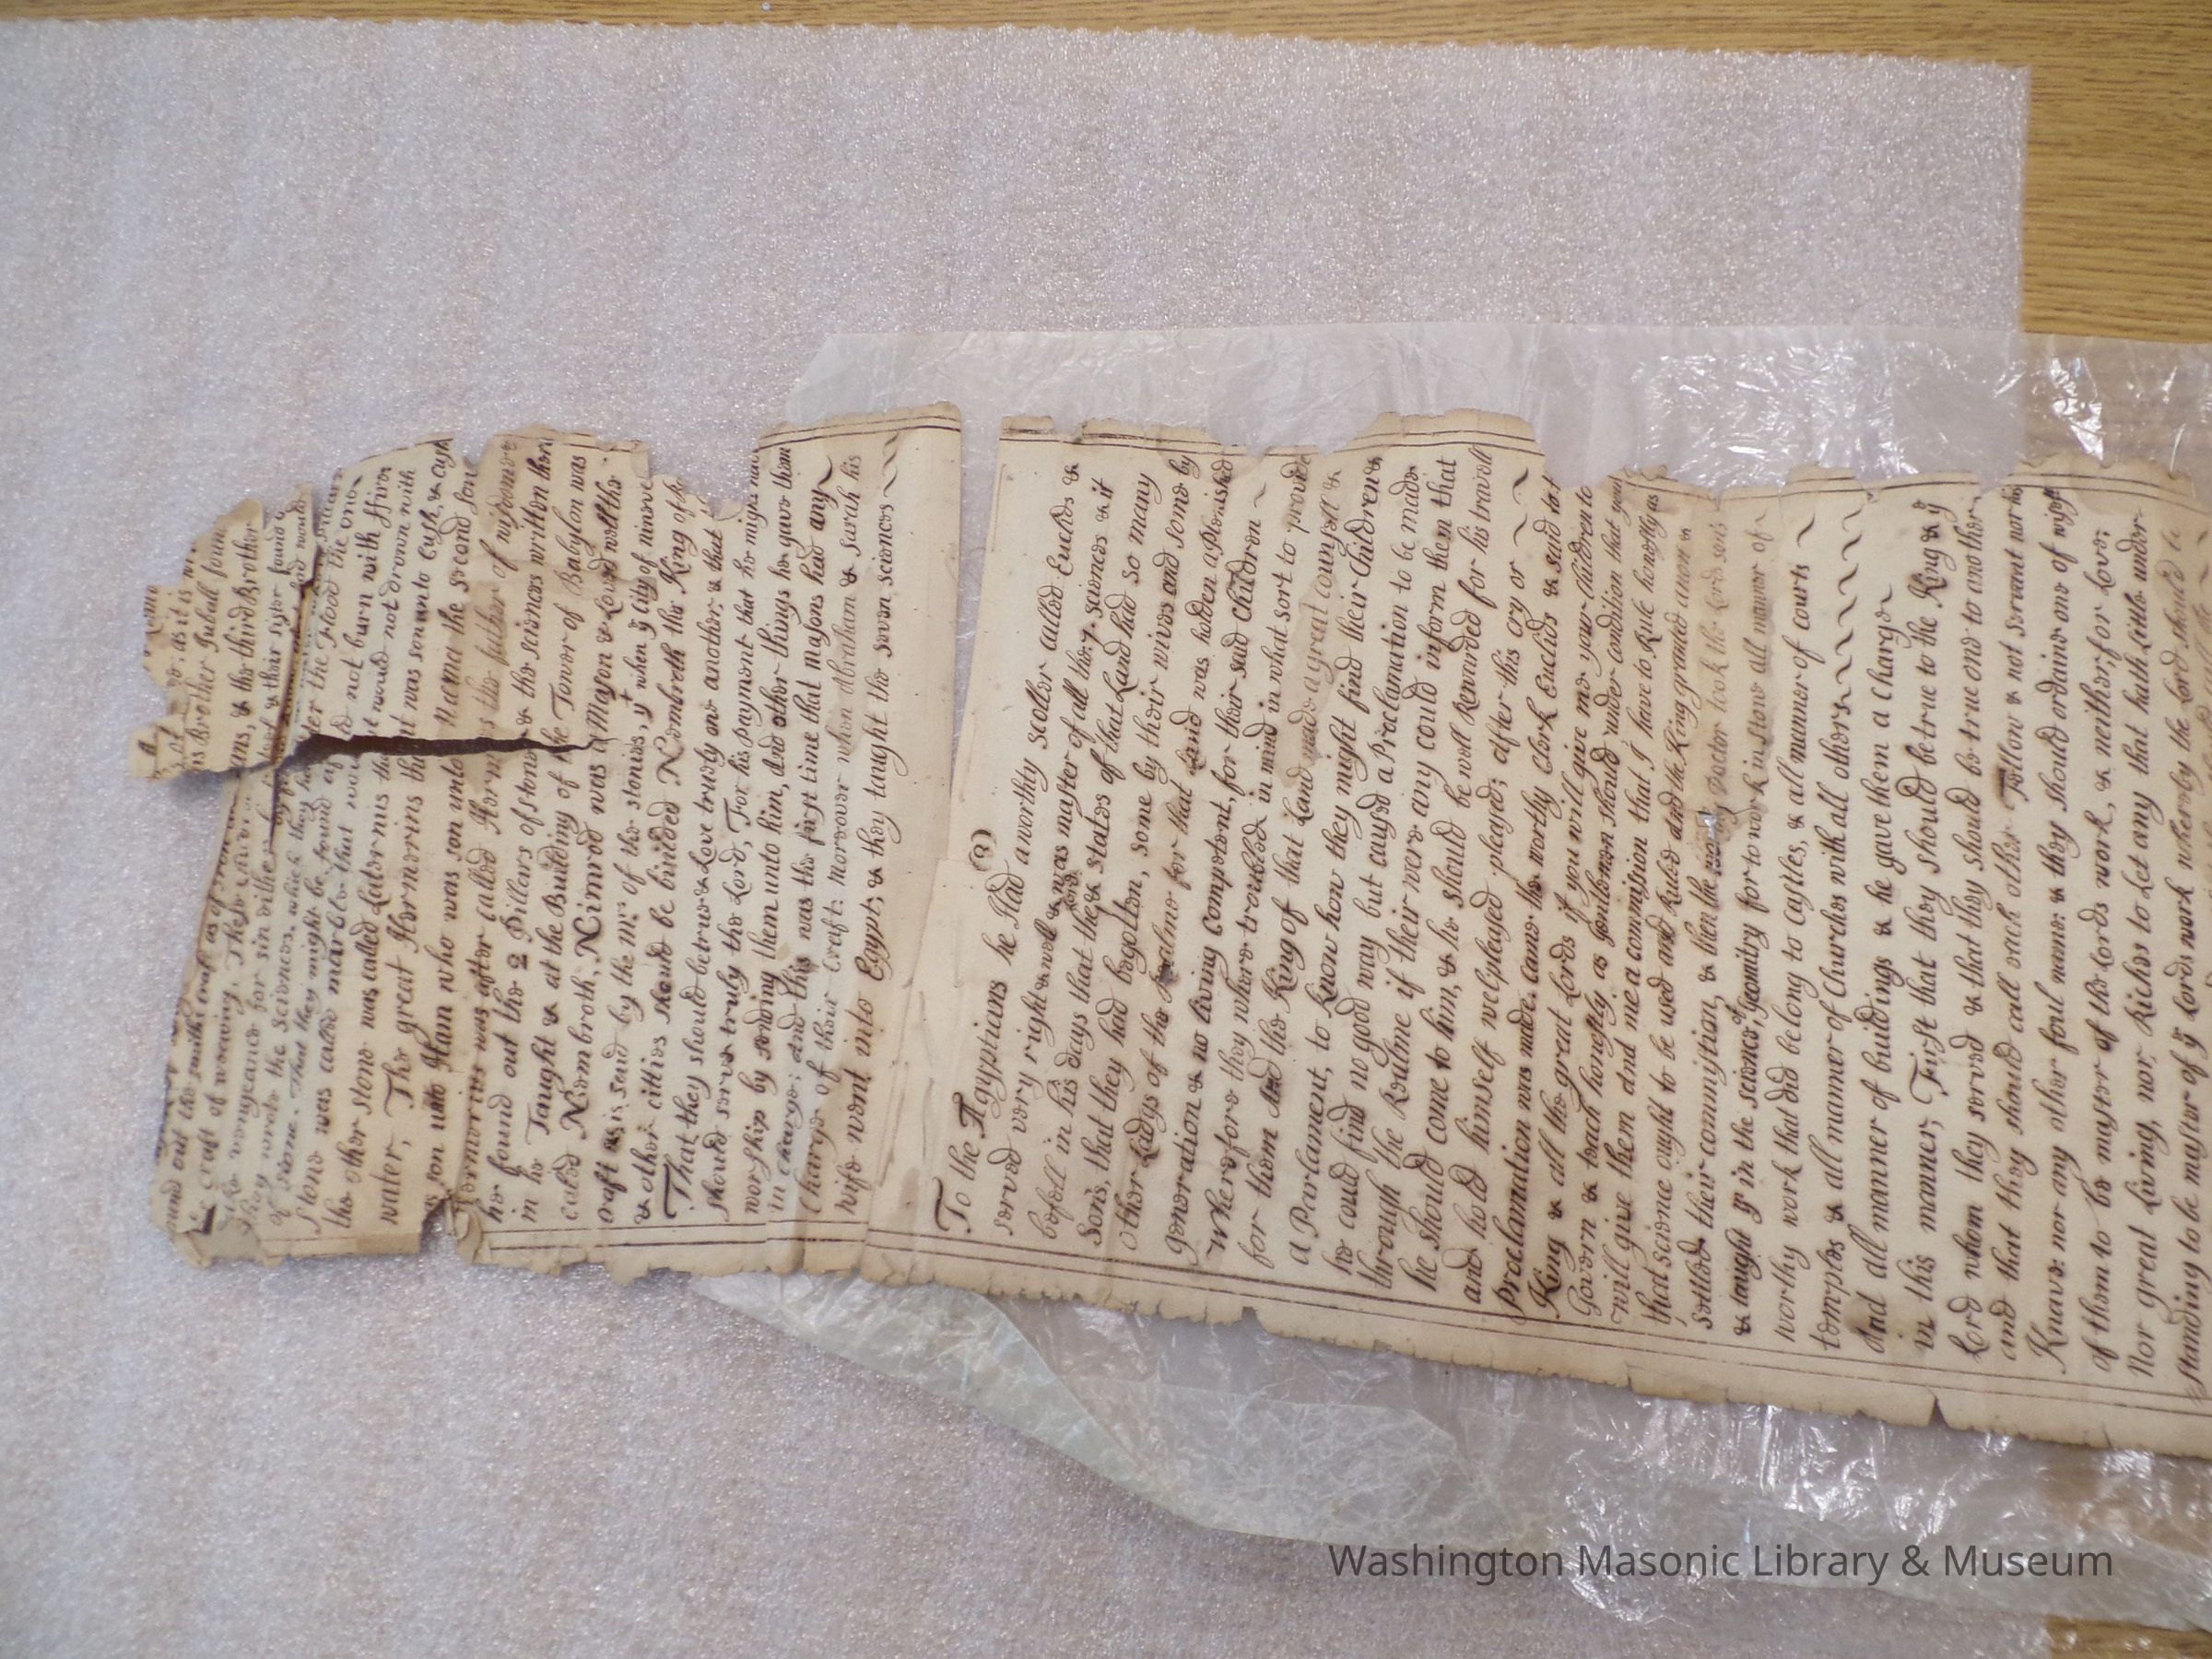 his Brother Juball foun
& the third Brother
found out the smiths craft as of
the craft of weaving. These
take vengeance for sin eithe
they wrote the Sciences, which they ha
of stone. That they might be found after the Flood the one
stone was called marble that would not burn with ffire
the other stone was called Laternis that would not drown with
water, The great Hermerins that was son unto Cush, & Cush
was son unto Ham who was son unto the second sone
Hermorius was after called Hermes the father of wisdome
he found out the 2 Pillers of stone & the sciences written ther
in he Taught & at the Building of the Tower of Babylon was
caled Nembroth, Nimrod was a Mason & Loved well the
craft as is said by the mrs of the stories, yt when ye City of nineve
& other citties should be builded Nembroth the King of
That they should be true & Love truely one another, & that
should serve truly the Lord, For his payment that he might hav
worship by sending them unto him, and other things he gave them
in charge; and this was the first time that masons had any
Charge of their Craft: moreover when Abraham & Sarah his
wife went into Egypt, & they taught the seven sciences
(3)
To the Ægyptions he Had a worthy scoller called Euclide &
served very right & well & was master of all the 7 sciences & it
befell in his days that the Lord & states of that Land had so many
Sons, that they had begotten, some by their wives and some by
other Ladys of the Realme for that Land was holden asplenished
generation & no living competent, for their said Children
Wherefore they where troubled in mind in what sort to provide
for them And the King of that Land made a great counsell &
a Parlament, to know how they might find their Children &
he could find no good way but caused a Proclamation to be made
through the Realme if their were any could inform them that
he should come to him, & he should be well Rewarded for his travell
and hold himself well pleased; after this cry or
Proclamation was made. came the worthy Clerk Euclide & said to
King & all the great Lords if you will give me your children to
Govern & teach honestly as gentlemen should under condition that you
will give them and me a commission that I have to Rule honestly as
that science ought to be used and Ruled and the King granted anon &
settled their commission, & then the worthy Doctor took the Lords sons
& taught ym in the science of geomitry for to work in stone all manner of
worthy work that did belong to castles, & all manner of courts
temples & all manner of Churches with all others
And all manner of buildings & he gave them a charge
in this manner; First that they should be true to the King & ye
Lord whom they served & that they should be true one to another
and that they should call each other Fellow & not servant nor his
Knave: nor any other foul name: & they should ordaine one of wysest
of them to be master of the Lords work, & neither, for Love;
Nor great Living, nor Riches to Let any that hath Little under-
standing to be master of ye Lords work whereby the Lord should be
Washington Masonic Library & Museum